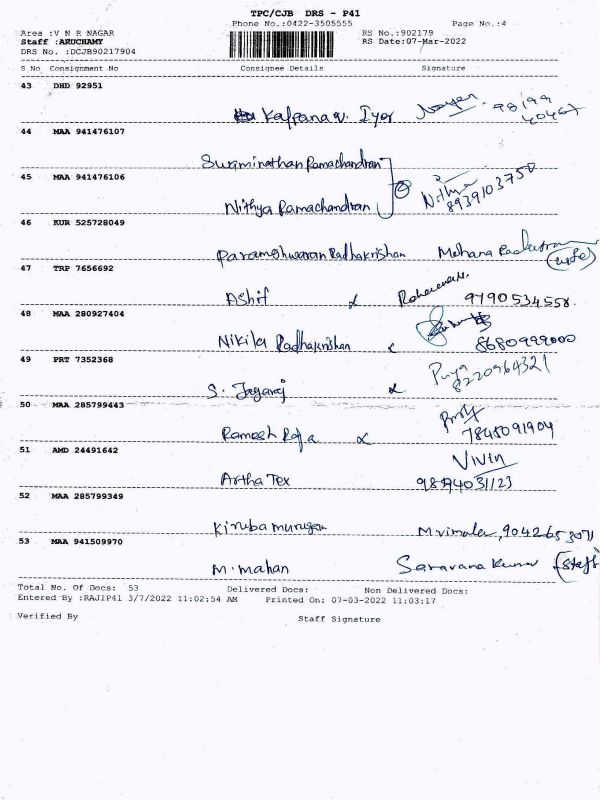 TPC/CJB DRS - P41
Phone No.:0422-3505555 Page No.:4
Area :V N R NAGAR RS No.:902179
Staff :ARUCHAMY RS Date:07-Mar-2022
DRS No. :DCJB90217904
S No Consignment No Consignee Details Signature
43 DHD 92951
Kalpana v. Iyer 98199
40467
44 MAA 941476107
Swaminathan Ramachandran
45 MAA 941476106
Nithya Ramachandran Nithya 8939103750
46 KUR 525728049
Parameshwaran Radhakrishan Mohana (wife)
47 TRP 7656692
Ashif 9790534558
48 MAA 280927404
Nikila Radhakrishan 8680999000
49 PRT 7352368
S. Jegaraj Priya 8220964321
50 MAA 285799443
Ramesh Raja 7845091904
51 AMD 24491642
Artha Tex Vivin
52 MAA 285799349
Kirubamurugan M vimala, 9042653071
53 MAA 941509970
M. Mahan Saravana Kumar (Staff)
Total No. Of Docs: 53 Delivered Docs: Non Delivered Docs:
Entered By :RAJIP41 3/7/2022 11:02:54 AM Printed On: 07-03-2022 11:03:17
Verified By Staff Signature